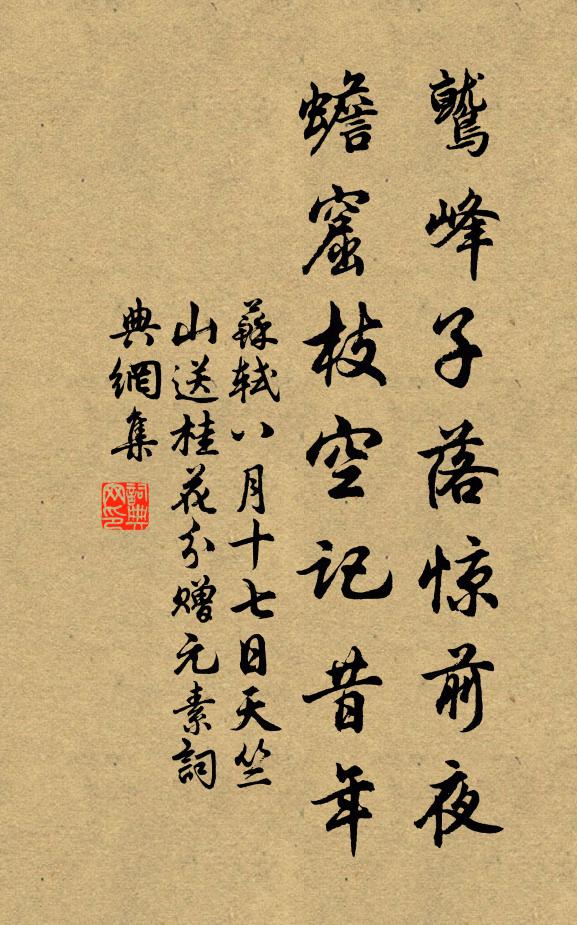 鷲峰子落惊前夜
蟾窟枝空记昔年
蘇軾八月十七日天竺
山送桂花分赠元素詞
典網集
詞典
网印